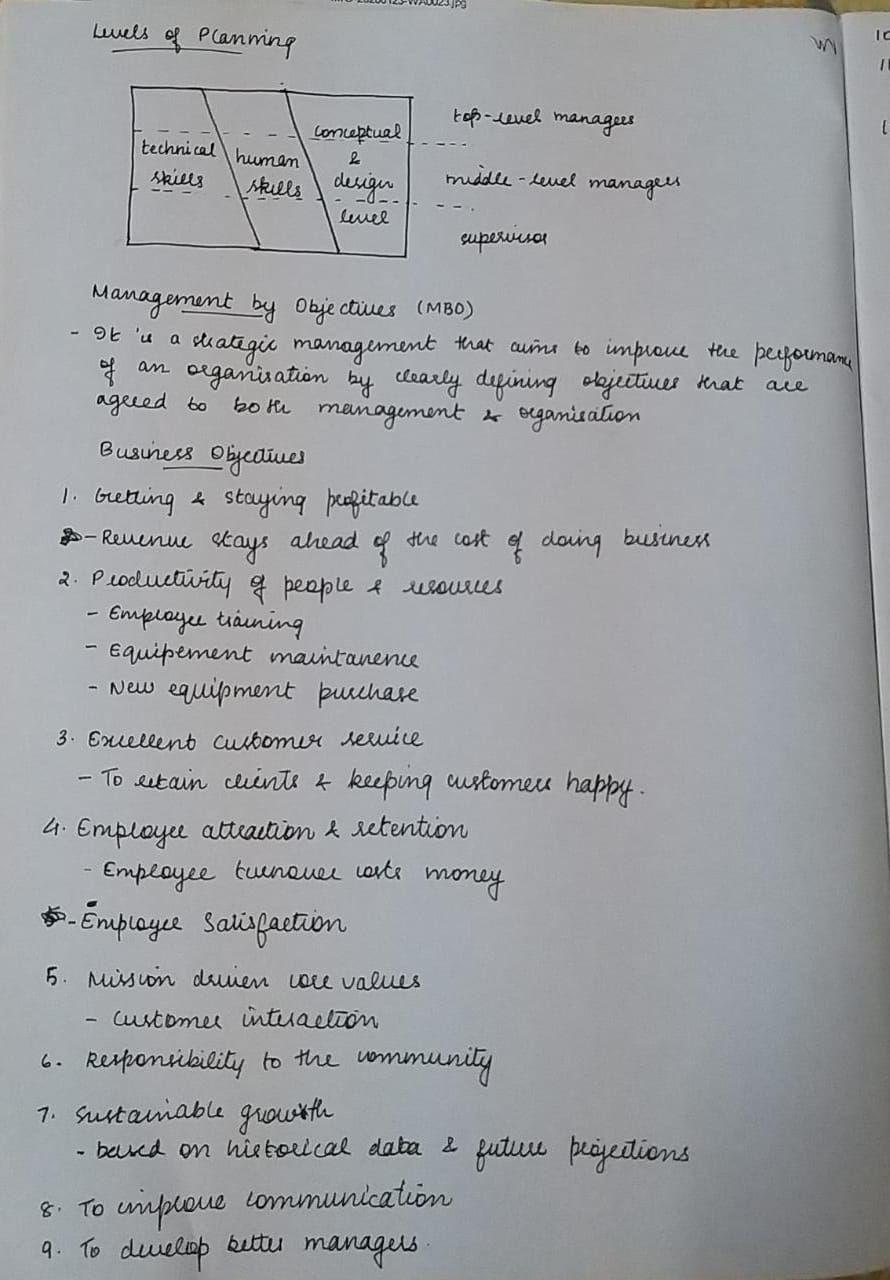 Levels of Planning
technical
skills
human
skills
conceptual
&
design
level
top-level managers
middle-level managers
supervisor
Management by Objectives (MBO)
- It is a strategic management that aims to improve the performance
of an organisation by clearly defining objectives that are
agreed to both management & organisation
Business Objectives
1. Getting & staying profitable
- Revenue stays ahead of the cost of doing business
2. Productivity of people & resources
- Employee training
- Equipement maintanence
- New equipment purchase
3. Excellent customer service
- To retain clients & keeping customers happy.
4. Employee attraction & retention
- Employee turnover costs money
- Employee Satisfaction
5. Mission driven core values
- Customer interaction
6. Responsibility to the community
7. Sustainable growth
- based on historical data & future projections
8. To improve communication
9. To develop better managers.